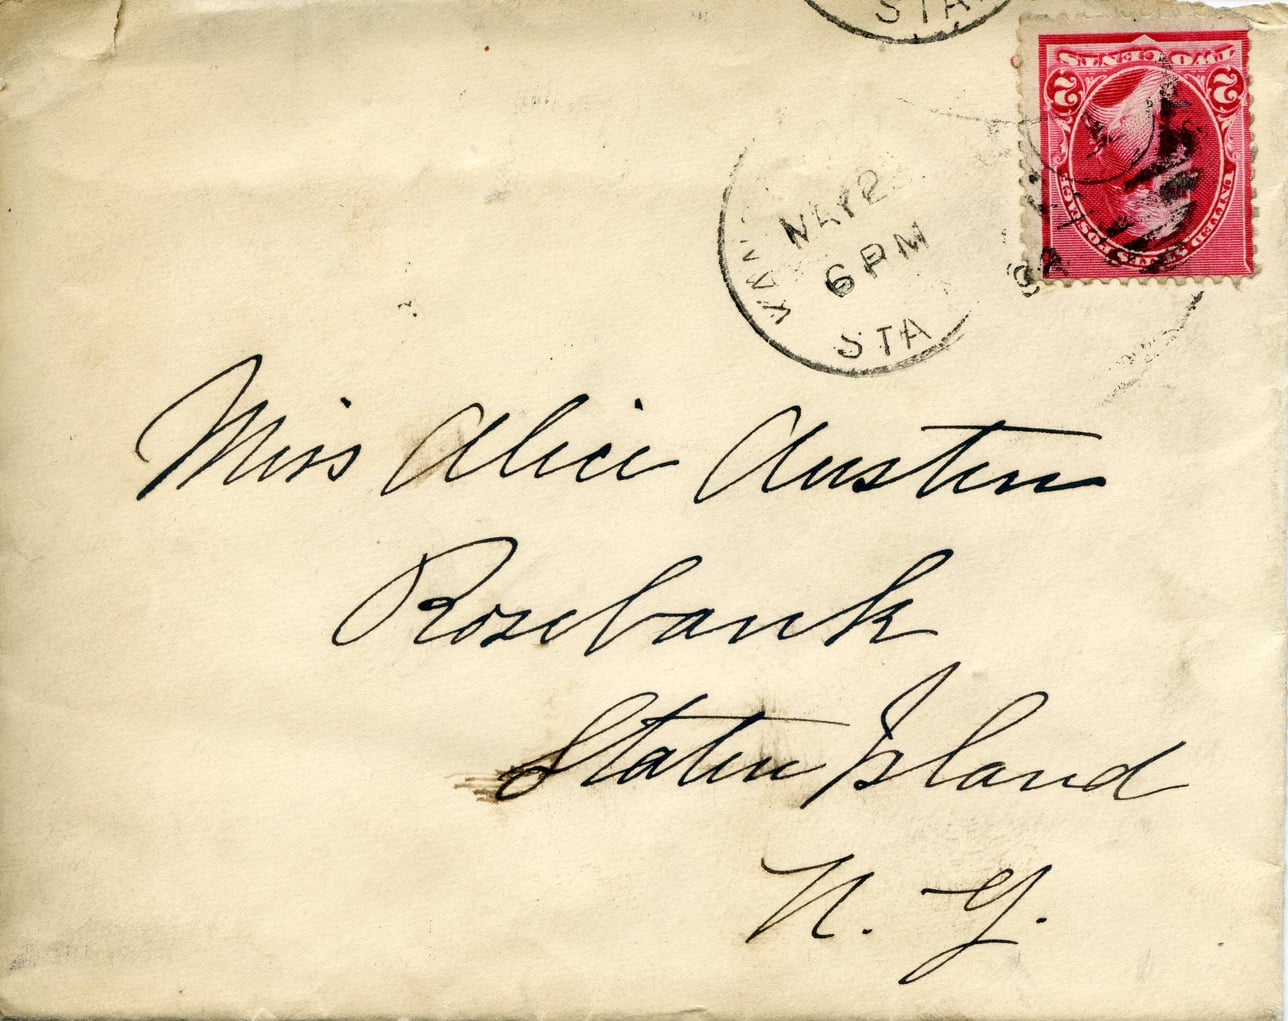 STA
TWO CENTS
2 2
6 PM
STA
Miss Alice Austen
Rosebank
Staten Island
N. Y.